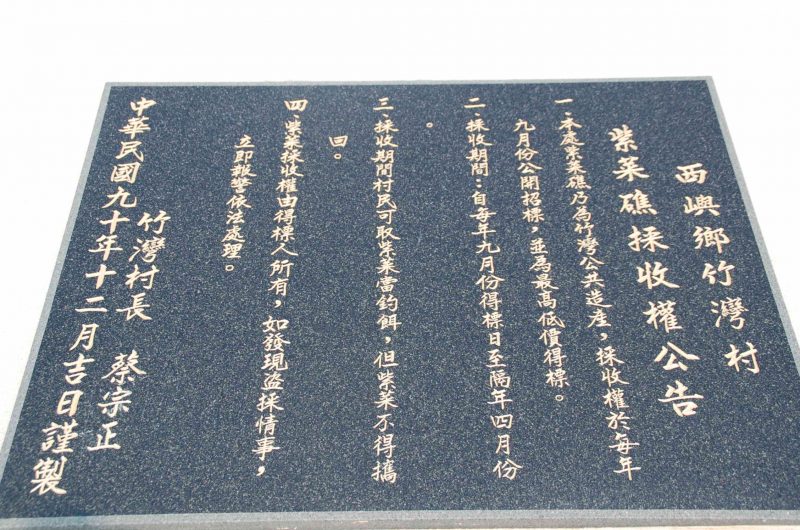 西嶼鄉竹灣村
紫菜礁採收權公告
一、本處紫菜礁乃為竹灣公共造產，採收權於每年
九月份公開招標，並為最高低價得標。
二、採收期間：自每年九月份得標日至隔年四月份
。
三、採收期間村民可取紫菜當釣餌，但紫菜不得攜
回。
四、紫菜採收權由得標人所有，如發現盜採情事，
立即報警依法處理。
竹灣村長　蔡宗正
中華民國九十年十二月吉日謹製